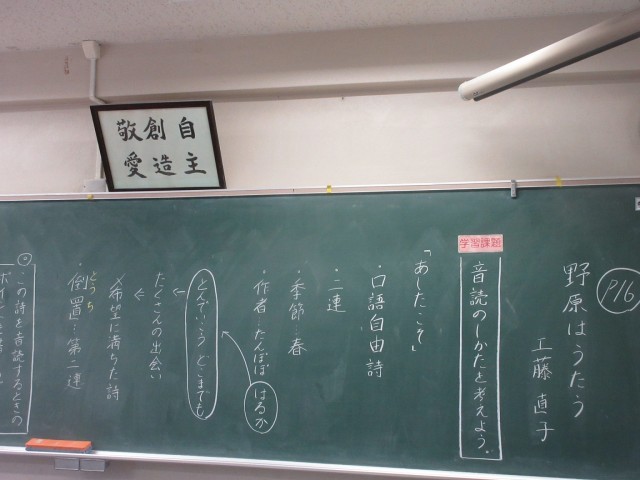 自主
創造
敬愛
P16
野原はうたう
工藤 直子
学習課題
音読のしかたを考えよう。
「あしたこそ」
・口語自由詩
・二連
・季節…春
・作者…たんぽぽ はるか
とんでいこう どこまでも
たくさんの出会い
希望に満ちた詩
・倒置…第二連
とうち
◎
・この詩を音読するときの